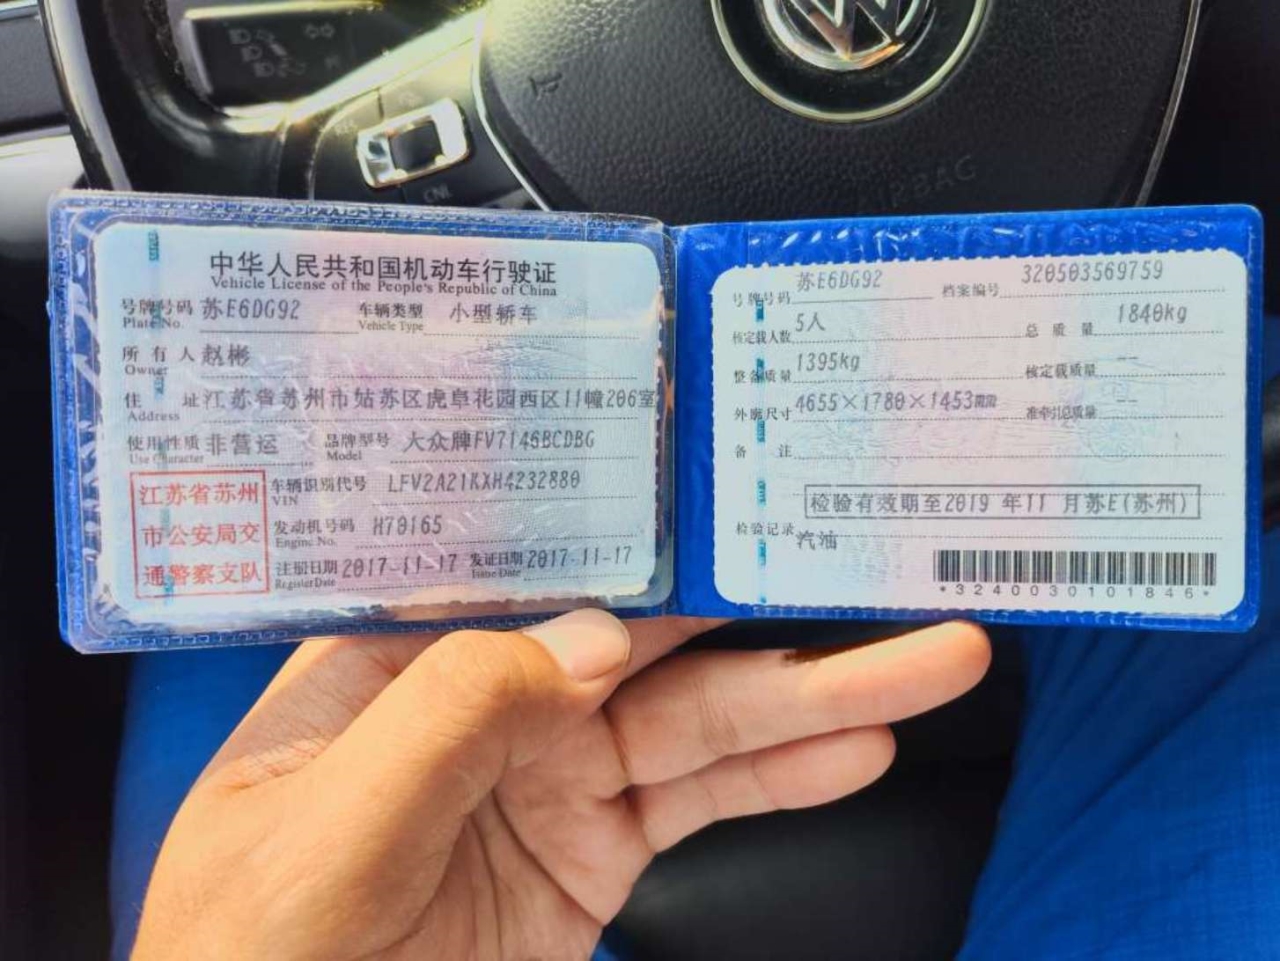 中华人民共和国机动车行驶证
Vehicle License of the People's Republic of China
号牌号码 苏E6DG92 车辆类型 小型轿车
Plate No. Vehicle Type
所有人 赵彬
Owner
住 址 江苏省苏州市姑苏区虎阜花园西区11幢206室
Address
使用性质 非营运 品牌型号 大众牌FV7146BCDBG
Use Character Model
江苏省苏州
市公安局交
通警察支队
车辆识别代号 LFV2A21KXH4232880
VIN
发动机号码 H70165
Engine No.
注册日期 2017-11-17 发证日期 2017-11-17
Register Date Issue Date
号牌号码 苏E6DG92 档案编号 320503569759
核定载人数 5人 总质量 1840kg
整备质量 1395kg 核定载质量 --
外廓尺寸 4655×1780×1453mm 准牵引总质量 --
备 注
检验有效期至2019 年11 月苏E(苏州)
检验记录
汽油
*3240030101846*